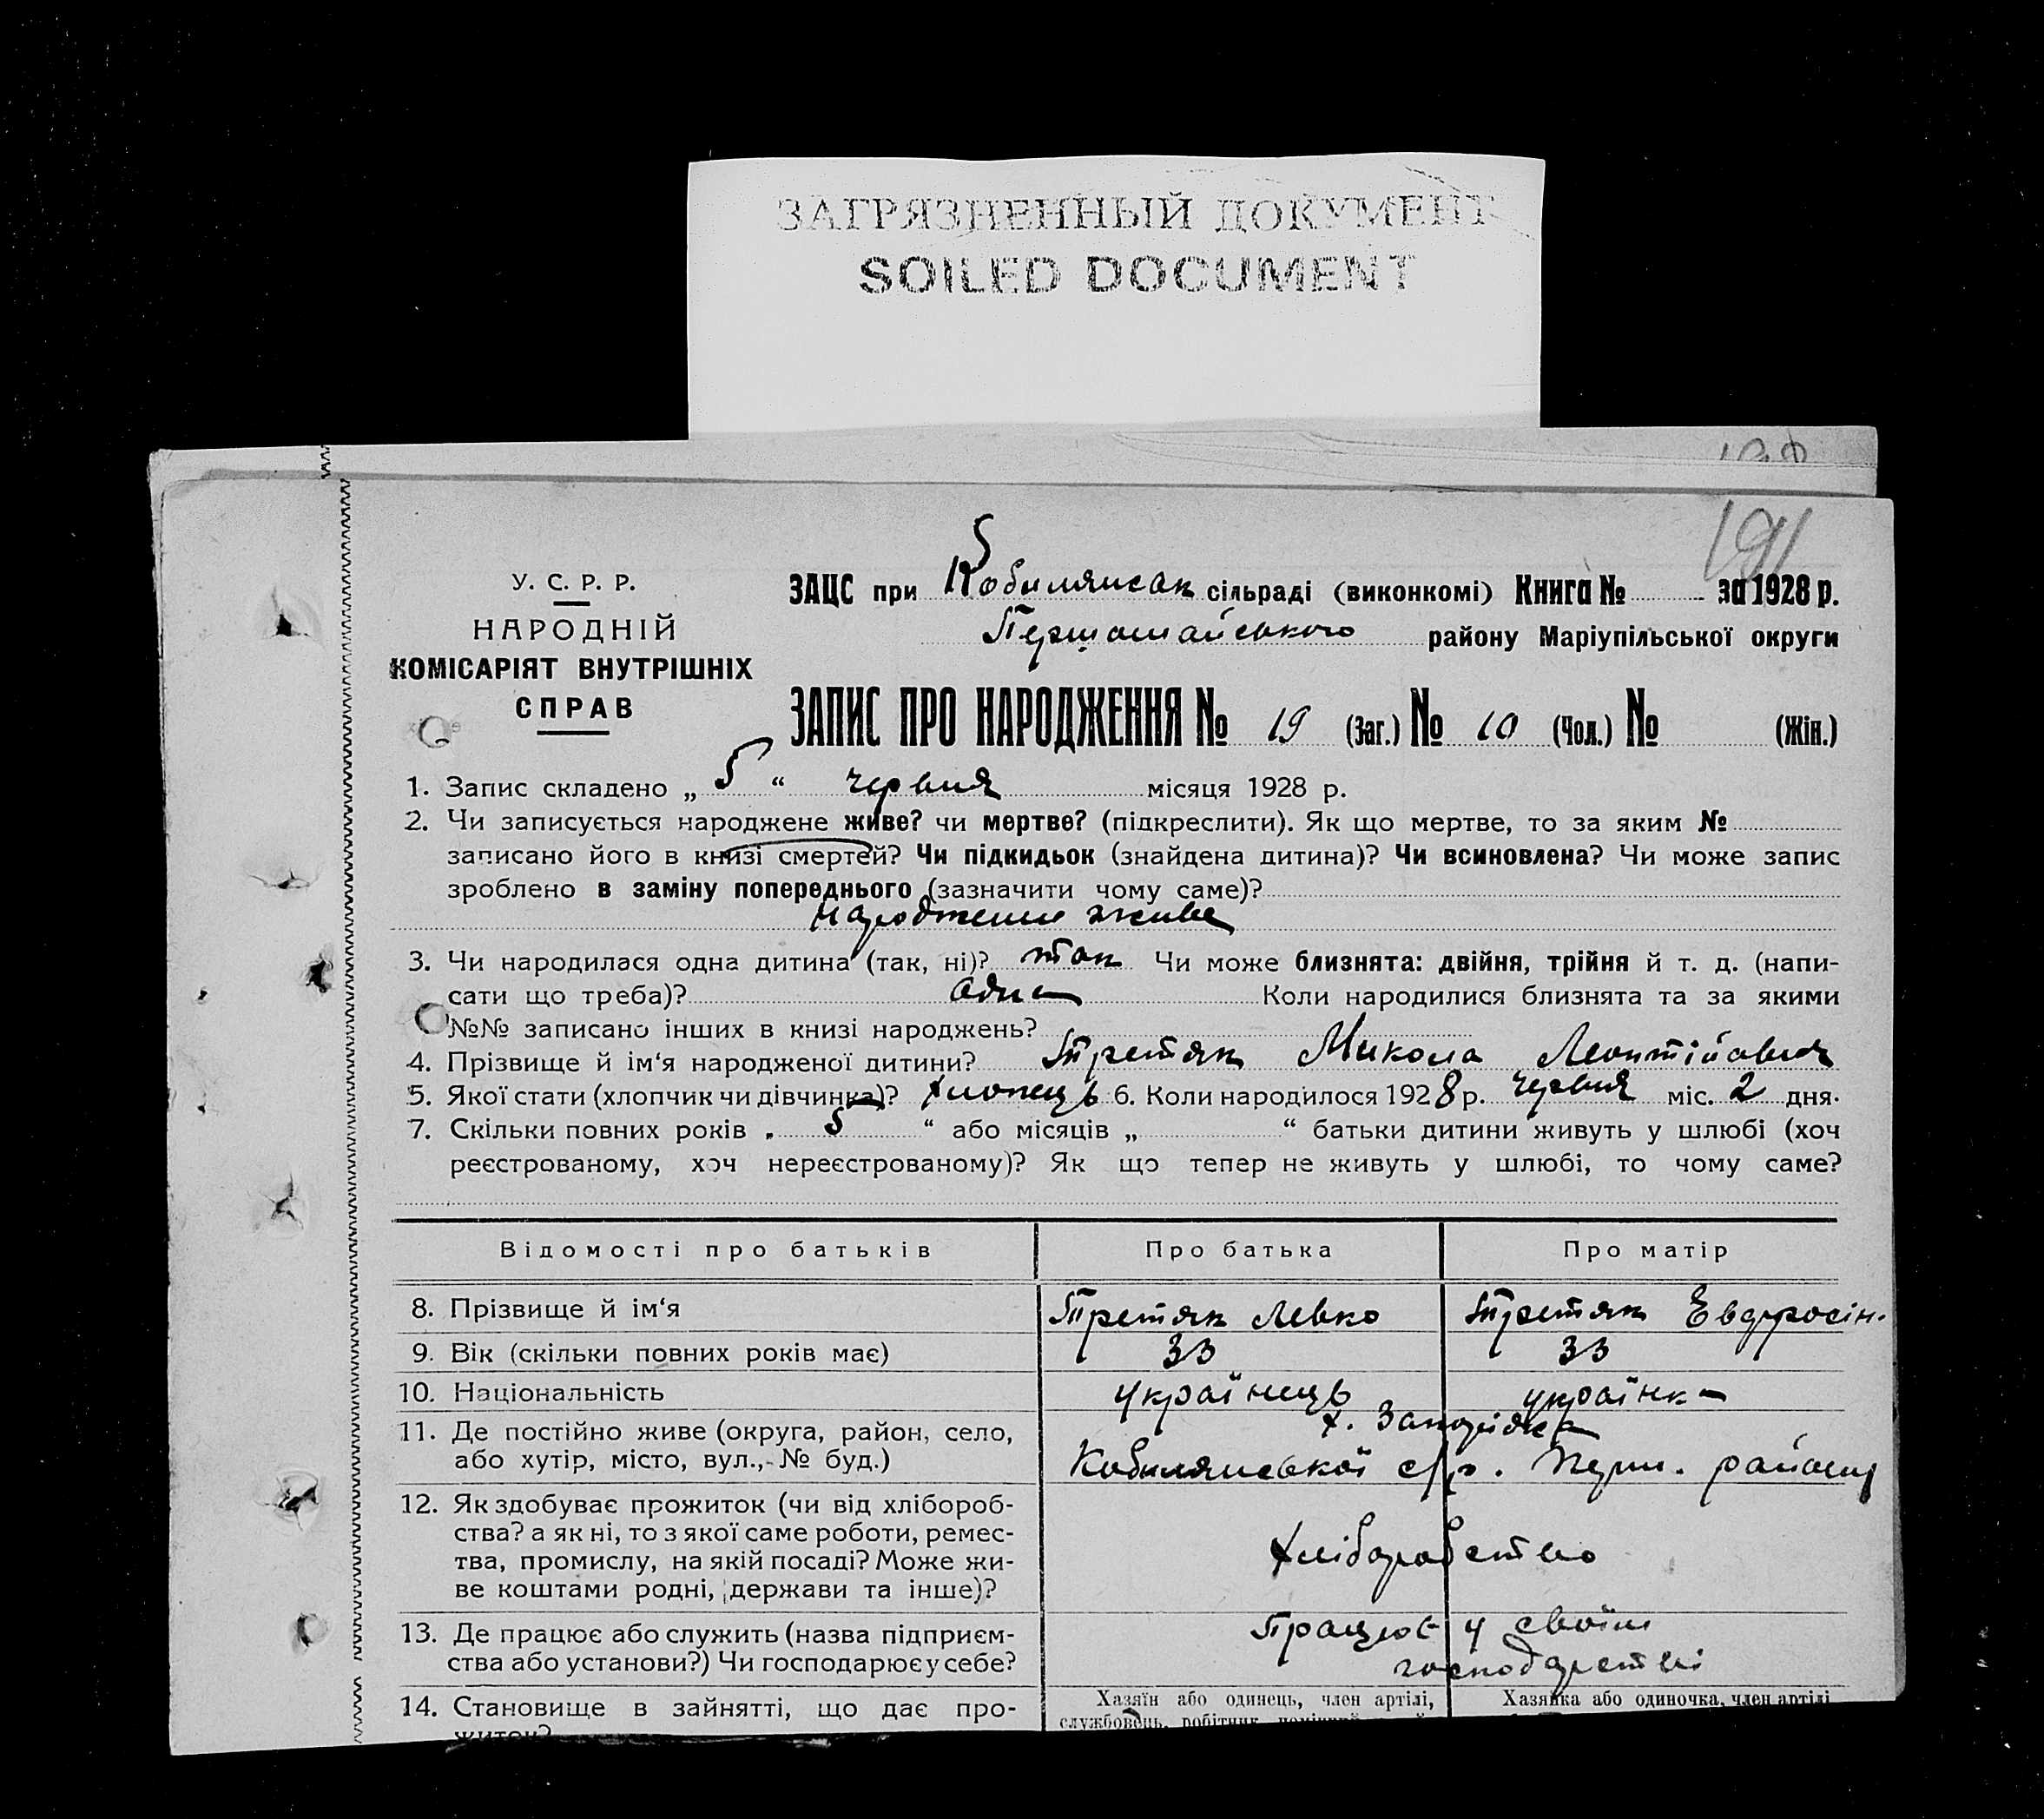 ЗАГРЯЗНЕННЫЙ ДОКУМЕНТ
SOILED DOCUMENT
191
5
У. С. Р. Р.
НАРОДНІЙ
КОМІСАРІЯТ ВНУТРІШНІХ
СПРАВ
ЗАЦС при Кобилянськ сільраді (виконкомі) Книга № за 1928 р.
Першомайського району Маріупільської округи
ЗАПИС ПРО НАРОДЖЕННЯ № 19 (Заг.) № 10 (Чол.) № (Жін.)
1. Запис складено „ 5 “ червня місяця 1928 р.
2. Чи записується народжене живе? чи мертве? (підкреслити). Як що мертве, то за яким №
записано його в книзі смертей? Чи підкидьок (знайдена дитина)? Чи всиновлена? Чи може запис
зроблено в заміну попереднього (зазначити чому саме)?
народжене живе
3. Чи народилася одна дитина (так, ні)? так Чи може близнята: двійня, трійня й т. д. (напи-
сати що треба)? одна Коли народилися близнята та за якими
№№ записано інших в книзі народжень?
4. Прізвище й ім‘я народженої дитини? Третяк Микола Леонтійович
5. Якої стати (хлопчик чи дівчинка)? хлопець 6. Коли народилося 1928 р. червня міс. 2 дня.
7. Скільки повних років „ 5 “ або місяців „ “ батьки дитини живуть у шлюбі (хоч
реєстрованому, хоч нереєстрованому)? Як що тепер не живуть у шлюбі, то чому саме?
Відомості про батьків Про батька Про матір
8. Прізвище й ім‘я Третяк Левко Третяк Евдросін.
9. Вік (скільки повних років має) 33 33
10. Національність українець українка
11. Де постійно живе (округа, район, село, х. Запоріжжа
або хутір, місто, вул., № буд.) Кобилянської с/р. Перш. району
12. Як здобуває прожиток (чи від хлібороб-
ства? а як ні, то з якої саме роботи, ремес-
тва, промислу, на якій посаді? Може жи-
ве коштами родні, держави та інше)?
хліборобство
13. Де працює або служить (назва підприєм- Працює у своїм
ства або установи?) Чи господарює у себе? господарстві
14. Становище в зайнятті, що дає про- Хазяїн або одинець, член артілі, Хазяйка або одиночка, член артілі
житок? службовець, робітник